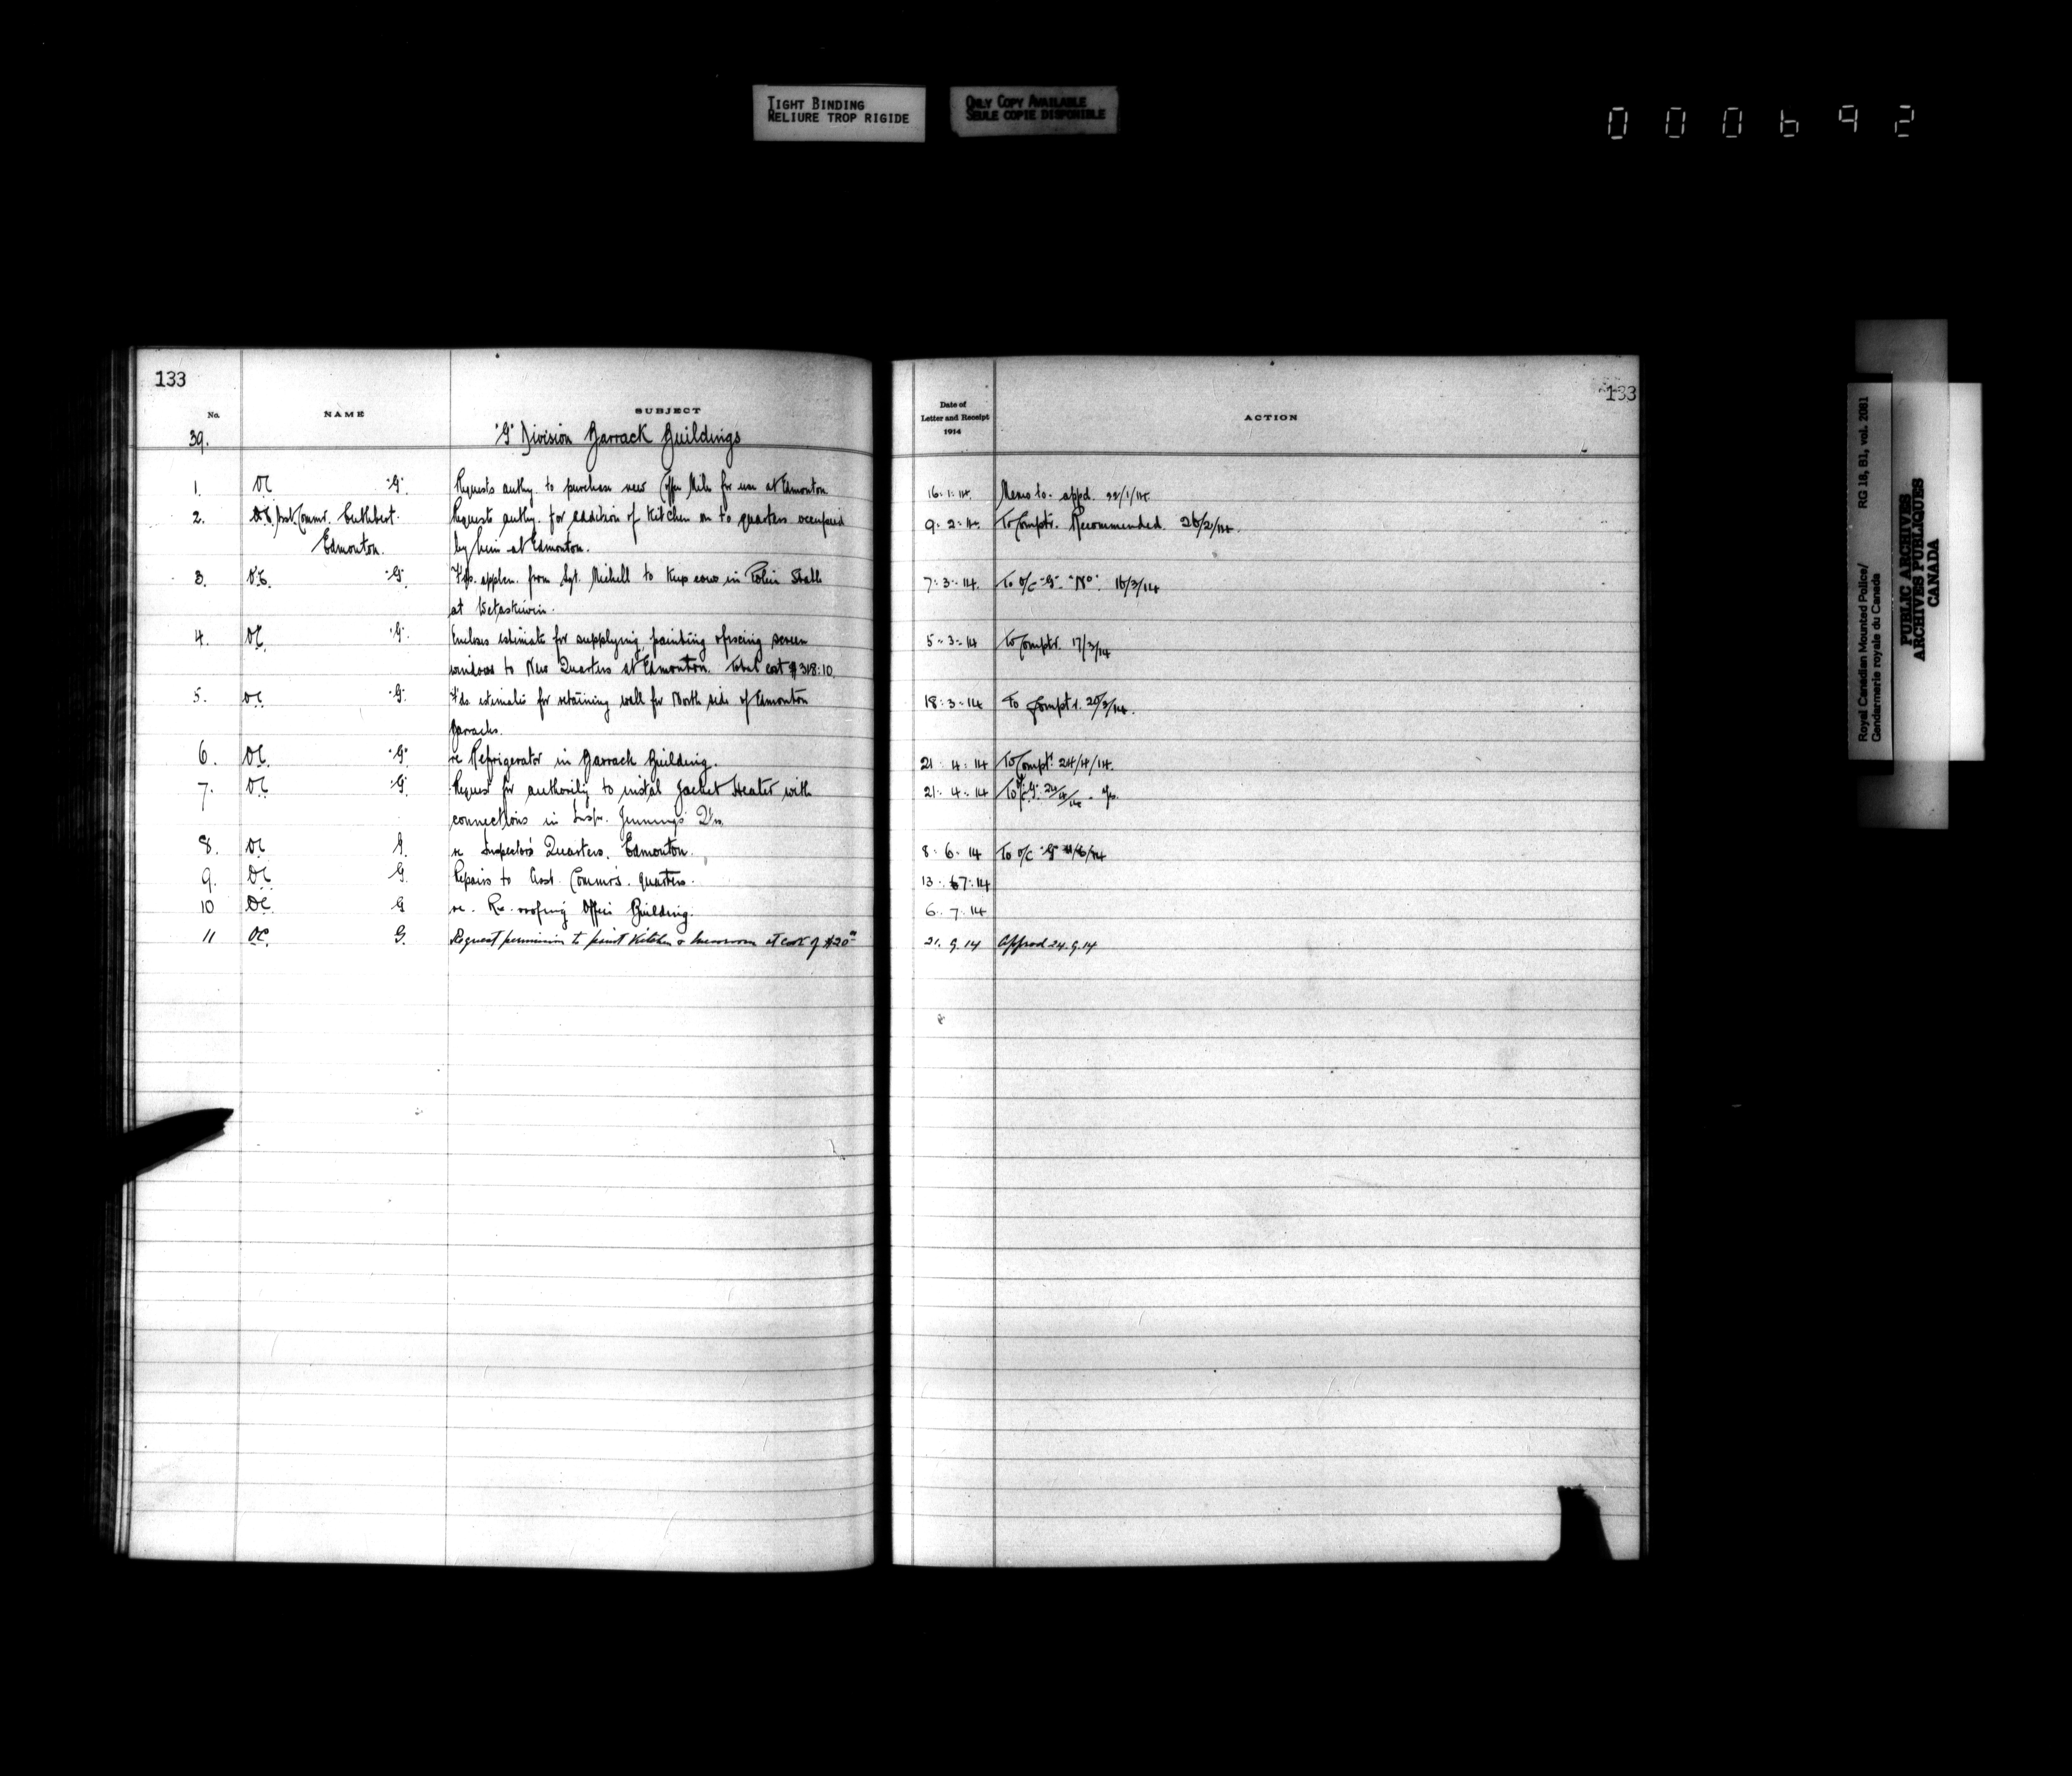 TIGHT BINDING
RELIURE TROP RIGIDE
ONLY COPY AVAILABLE
SEULE COPIE DISPONIBLE
000692
133
No. NAME SUBJECT
39. "G" Division Barrack Buildings
1. OC "G" Requests authy. to purchase new for use at Edmonton
2. Asst. Commr. Cuthbert. Request authy. for addition of Kitchen on to quarters occupied
Edmonton. by him at Edmonton.
3. OC. "G" applcn. from Sgt. Michell to keep cow in Police Stable
at Wetaskiwin.
4. OC. "G". Encloses estimate for supplying, painting & fixing screen
windows to New Quarters at Edmonton. Total cost $318:10
5. OC "G" F'ds estimates for retaining wall for North side of Edmonton
Barracks.
6. OC. "G" re Refrigerator in Barrack Building.
7. OC "G" Request for authority to instal Jacket Heater with
connections in Insp. Jennings' Qrs.
8. OC G. re Inspector's Quarters, Edmonton.
9. OC G. Repairs to Asst. Commr's. quarters.
10 OC. G re. Re-roofing Office Building.
11 OC. G. Request permission to paint Kitchen & messroom at cost of $20
133
Date of
Letter and Receipt
1914
ACTION
16.1.14. Memo to. appd. 22/1/14
9.2.14. To Comptr. Recommended. 26/2/14.
7.3.14. To O/C "G". "No". 16/3/14
5.3.14 To Comptr. 17/3/14
18.3.14 To Comptr. 20/3/14.
21.4.14 To Comptr. 24/4/14.
21.4.14 To O/C "G". 24/4/14 - Yes.
8.6.14 To O/C "G" 11/6/14
13.7.14
6.7.14
21.9.14 Approd 24.9.14
Royal Canadian Mounted Police/ RG 18, B1, vol. 2081
Gendarmerie royale du Canada
PUBLIC ARCHIVES
ARCHIVES PUBLIQUES
CANADA